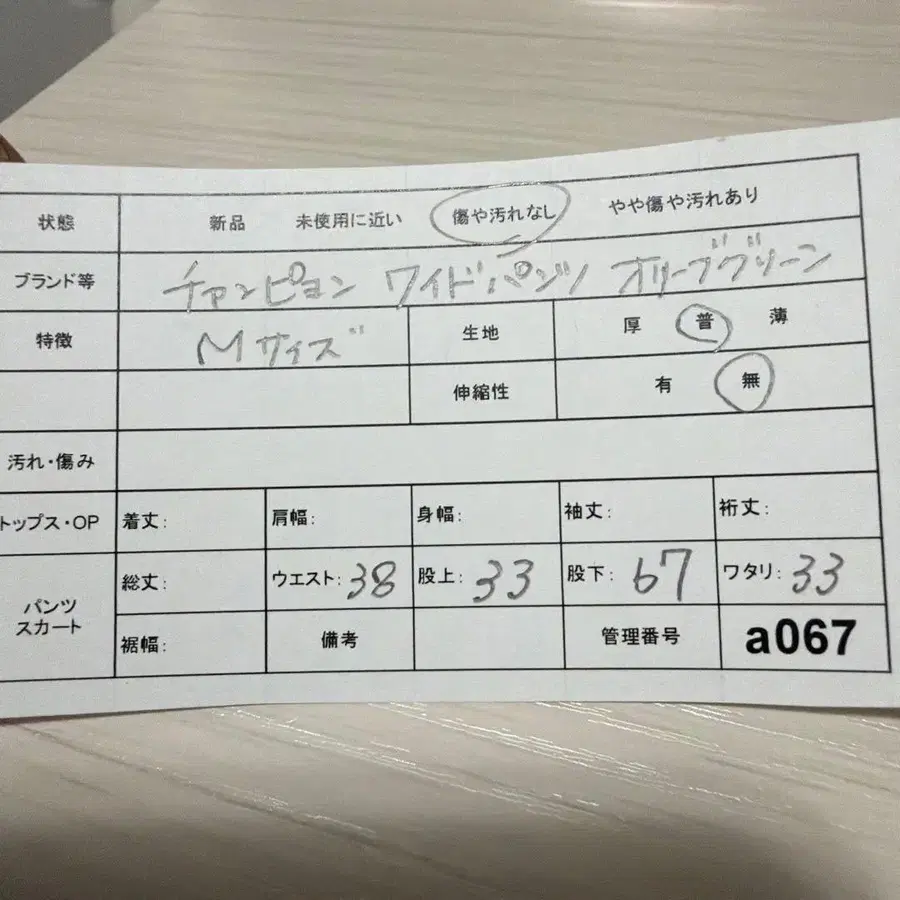 状態 新品 未使用に近い 傷や汚れなし やや傷や汚れあり
ブランド等 チャンピヨン ワイドパンツ オリーブグリーン
特徴 Mサイズ 生地 厚 普 薄
伸縮性 有 無
汚れ・傷み
トップス・OP 着丈: 肩幅: 身幅: 袖丈: 裄丈:
パンツ
スカート
総丈: ウエスト: 38 股上: 33 股下: 67 ワタリ: 33
裾幅: 備考 管理番号 a067